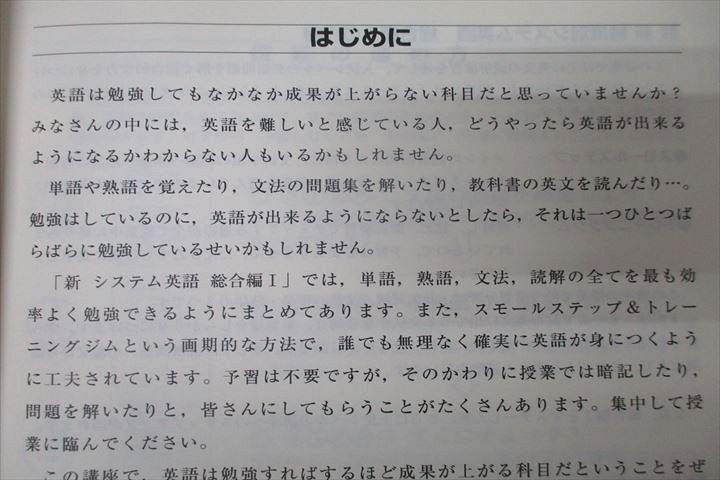 はじめに
英語は勉強してもなかなか成果が上がらない科目だと思っていませんか？
みなさんの中には，英語を難しいと感じている人，どうやったら英語が出来る
ようになるかわからない人もいるかもしれません。
単語や熟語を覚えたり，文法の問題集を解いたり，教科書の英文を読んだり…。
勉強はしているのに，英語が出来るようにならないとしたら，それは一つひとつば
らばらに勉強しているせいかもしれません。
「新 システム英語 総合編Ⅰ」では，単語，熟語，文法，読解の全てを最も効
率よく勉強できるようにまとめてあります。また，スモールステップ＆トレー
ニングジムという画期的な方法で，誰でも無理なく確実に英語が身につくよう
に工夫されています。予習は不要ですが，そのかわりに授業では暗記したり，
問題を解いたりと，皆さんにしてもらうことがたくさんあります。集中して授
業に臨んでください。
この講座で，英語は勉強すればするほど成果が上がる科目だということをぜ